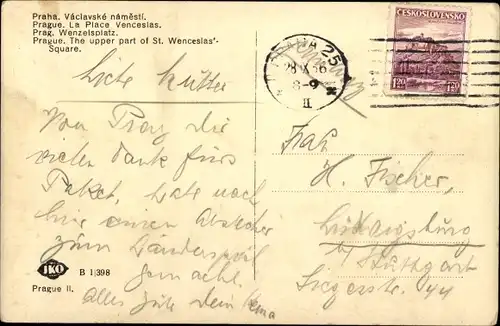 Praha. Václavské náměstí.
Prague. La Place Venceslas.
Prag. Wenzelsplatz.
Prague. The upper part of St. Wenceslas'-
Square.
ČESKOSLOVENSKO
1.20 1.20
PRAHA 25
28 X 36
8-9
II
Liebe Mutter
Von Prag die
vielen Dank fürs
Paket, habe noch
hier einen Abstecher
zum Länderspiel
gemacht.
Alles Gute Dein
Frau
H. Fischer,
Ludwigsburg
b/ Stuttgart
44
JKO
B 1|398
Prague II.